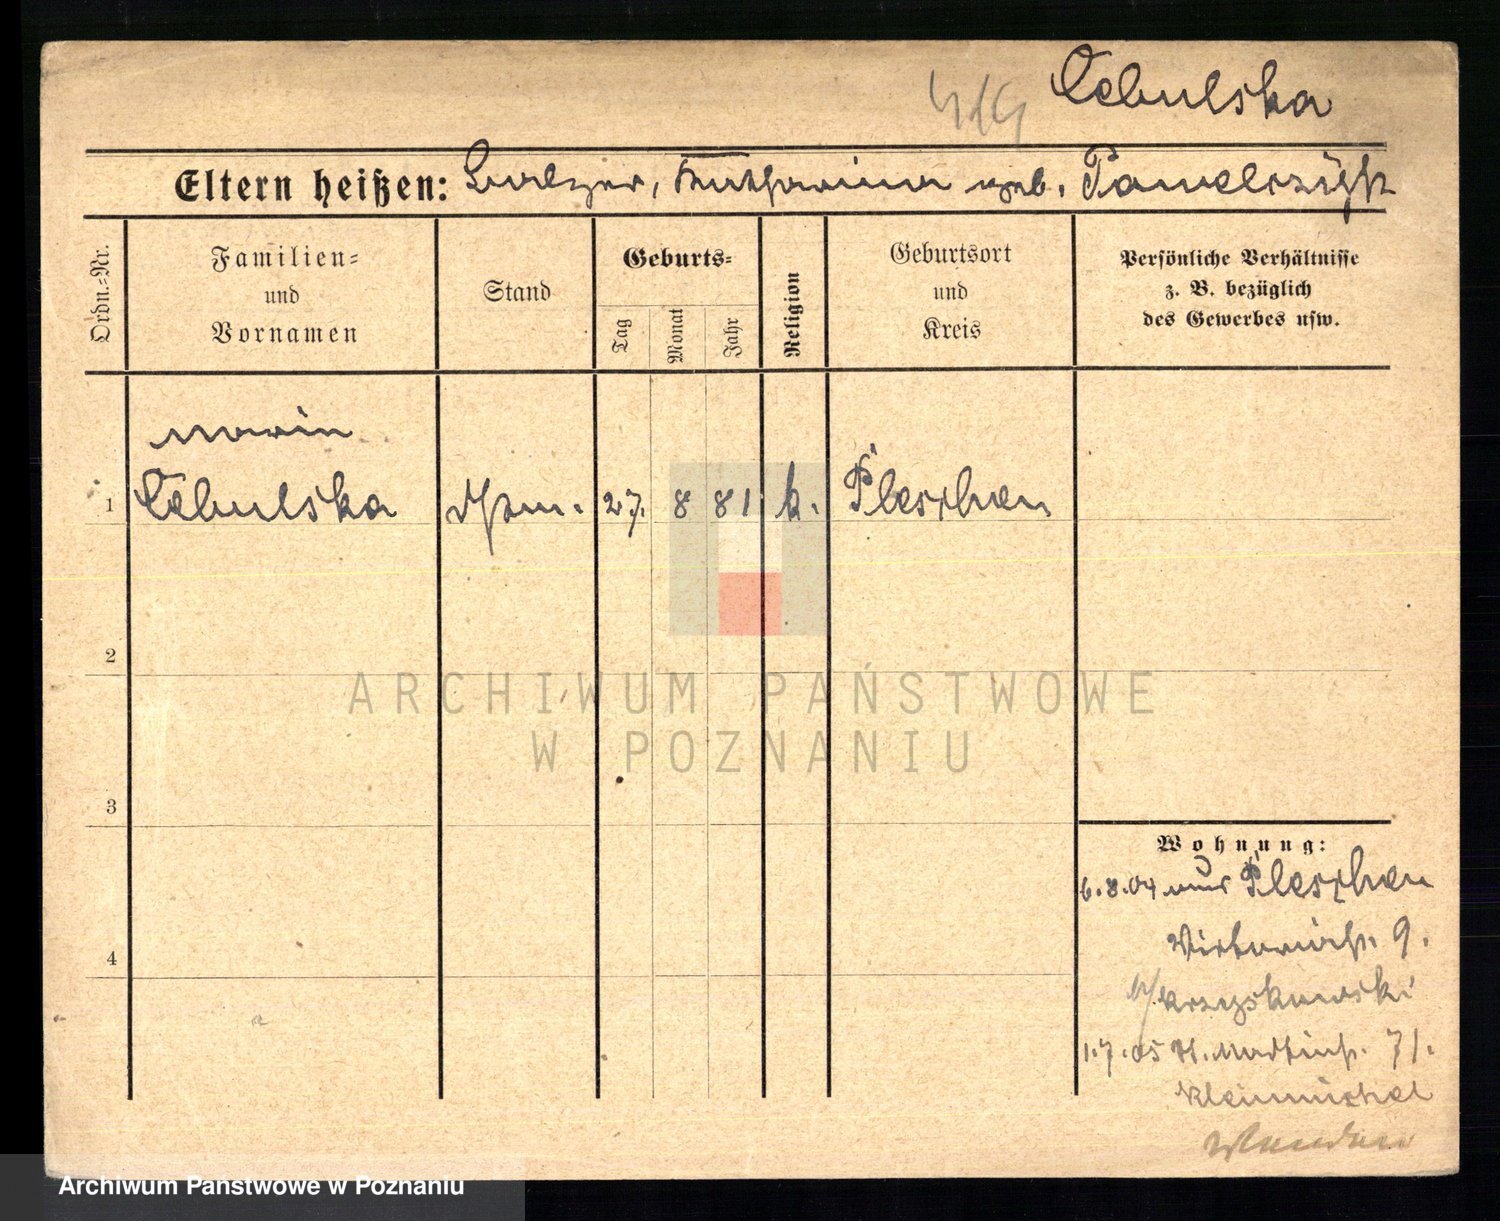 Cebulska
Eltern heißen: Balzer, Katharina geb. Pawelczyk
Ordn.-Nr.
Familien-
und
Vornamen
Stand
Geburts-
Tag
Monat
Jahr
Religion
Geburtsort
und
Kreis
Persönliche Verhältnisse
z. B. bezüglich
des Gewerbes usw.
Marie
1 Cebulska 27. 8 81. k. Pleschen
2
3
4
Wohnung:
6.8.04 aus Pleschen
Victoriastr. 9.
Krzyskowski
1.7.05 St. Martinstr. 71.
Kleinmichel
ARCHIWUM PAŃSTWOWE
W POZNANIU
Archiwum Państwowe w Poznaniu